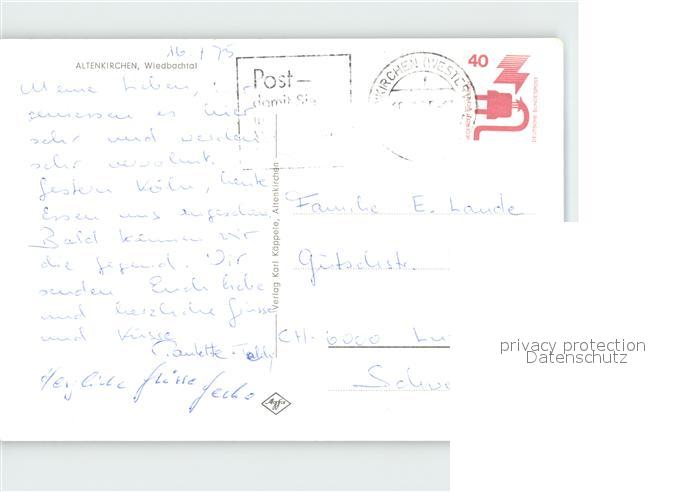 ALTENKIRCHEN, Wiedbachtal
Meine Lieben, wir
geniessen es hier
sehr und werden
sehr verwöhnt.
Gestern Köln, heute
Essen uns angesehen.
Bald kennen wir
die Gegend. Wir
senden Euch liebe
und herzliche Grüsse
und Küsse
Herzliche Grüsse
Post–
damit Sie
KIRCHEN (WESTER
40
DEUTSCHE BUNDESPOST
Verlag Karl Käppele, Altenkirchen
Agfa
Familie E. Landis
Gütschstr.
CH-6000 Lu
Schwe
privacy protection
Datenschutz